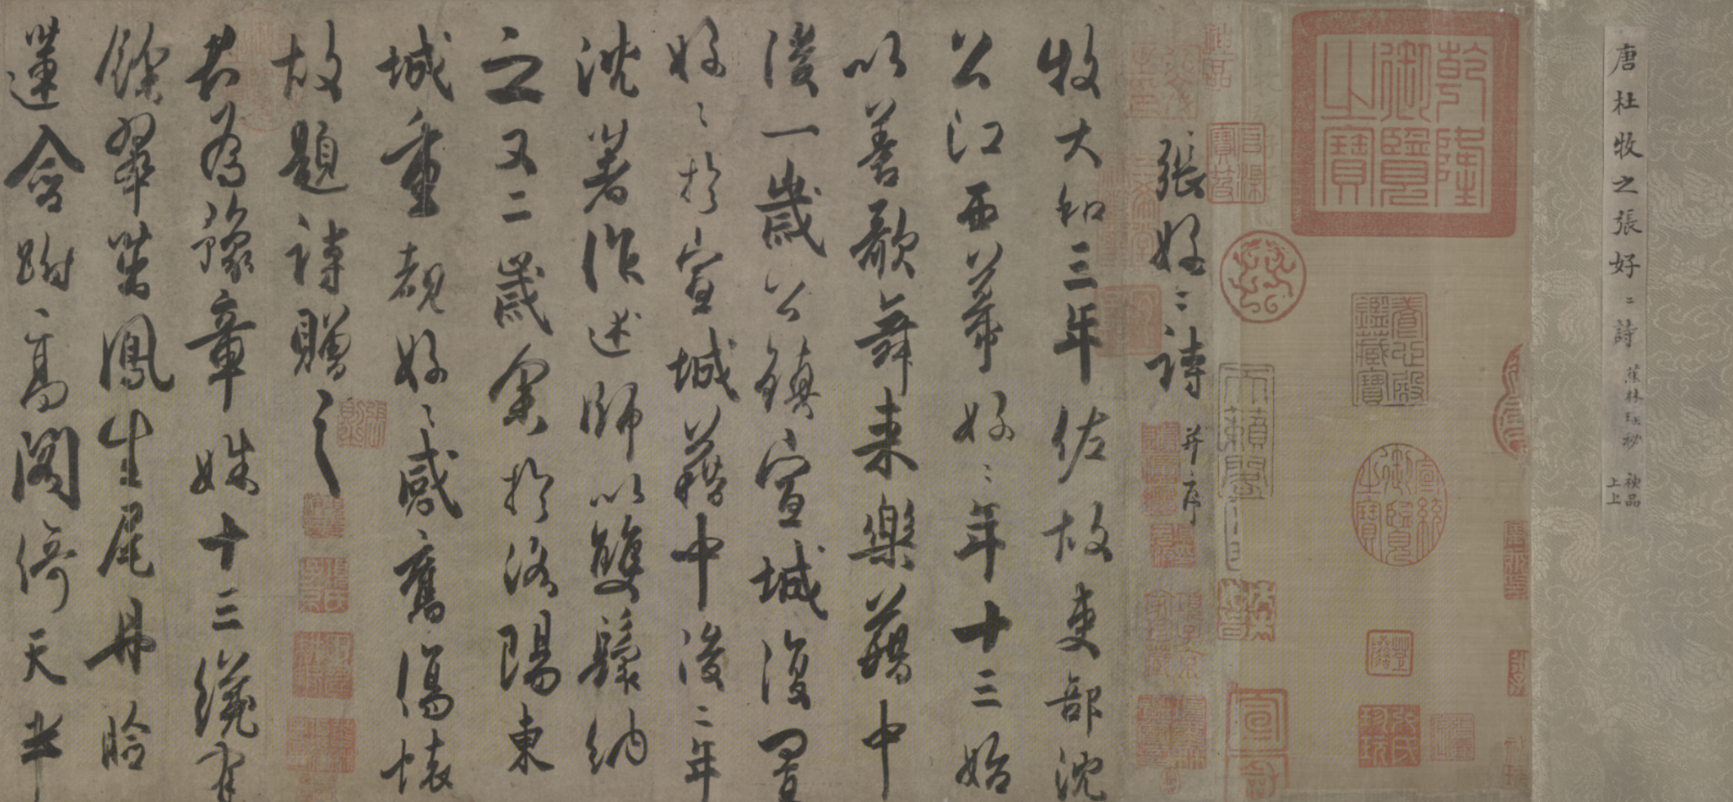 唐杜牧之張好〻詩 蕉林珍秘 神品上上
乾隆御覽之寶
宣統御覽之寶
張好〻詩 并序
牧大和三年佐故吏部沈
公江西幕好〻年十三始
以善歌舞來樂籍中
後一歲公鎮宣城復置
好〻於宣城籍中後二年
沈著作述師以雙鬟納
之又二歲余於洛陽東
城重覩好〻感舊傷懷
故題詩贈之
君為豫章姝十三纔有
餘翠茁鳳生尾丹臉
蓮含跗〻高閣倚天半